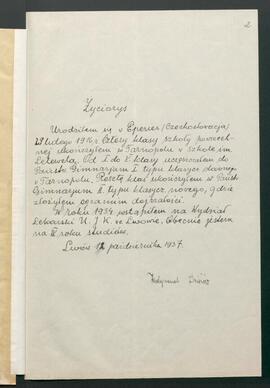 2
Życiorys
Urodziłem się w Eperies (Czechosłowacja)
lutego 1916 r. Cztery klasy szkoły powszech-
nej ukończyłem w Tarnopolu w szkole im.
Lelewela. Od I do V klasy uczęszczałem do
Państw. Gimnazjum I typu klasycz. dawnego
w Tarnopolu. Resztę klas ukończyłem w Państ.
Gimnazjum II. typu klasycz. nowego, gdzie
złożyłem egzamin dojrzałości.
W roku 1934 wstąpiłem na Wydział
Lekarski U. J. K. we Lwowie. Obecnie jestem
na III roku studiów.
Lwów 12 października 1937.